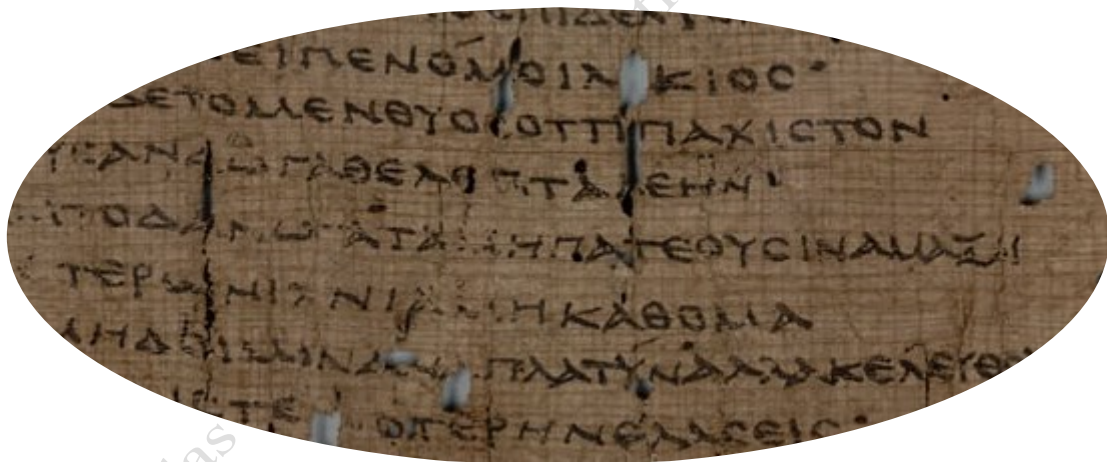 ΕΙΠΕΝΟΜΟΙΛ ΚΙΟC·
ΔΕΤΟΜΕΝΘΥΟCΟΤΤΙΠΑΧΙCΤΟΝ
ΥCΑΝΔΩΓΑΘΕΛΕΠΤΑΛΕΗΝ·
ΤΟΔΑΝΩΓΑΤΑΜΗΠΑΤΕΟΥCΙΝΑΜΑΞΑΙ
ΤΕΡΩΝΙΧΝΙΑΜΗΚΑΘΟΜΑ
ΜΗΔΟΙΜΟΝΑΝΑΠΛΑΤΥΝΑΛΛΑΚΕΛΕΥΘΟ
CΤΕ ΟΤΕΡΗΝΕΛΑCΕΙC·